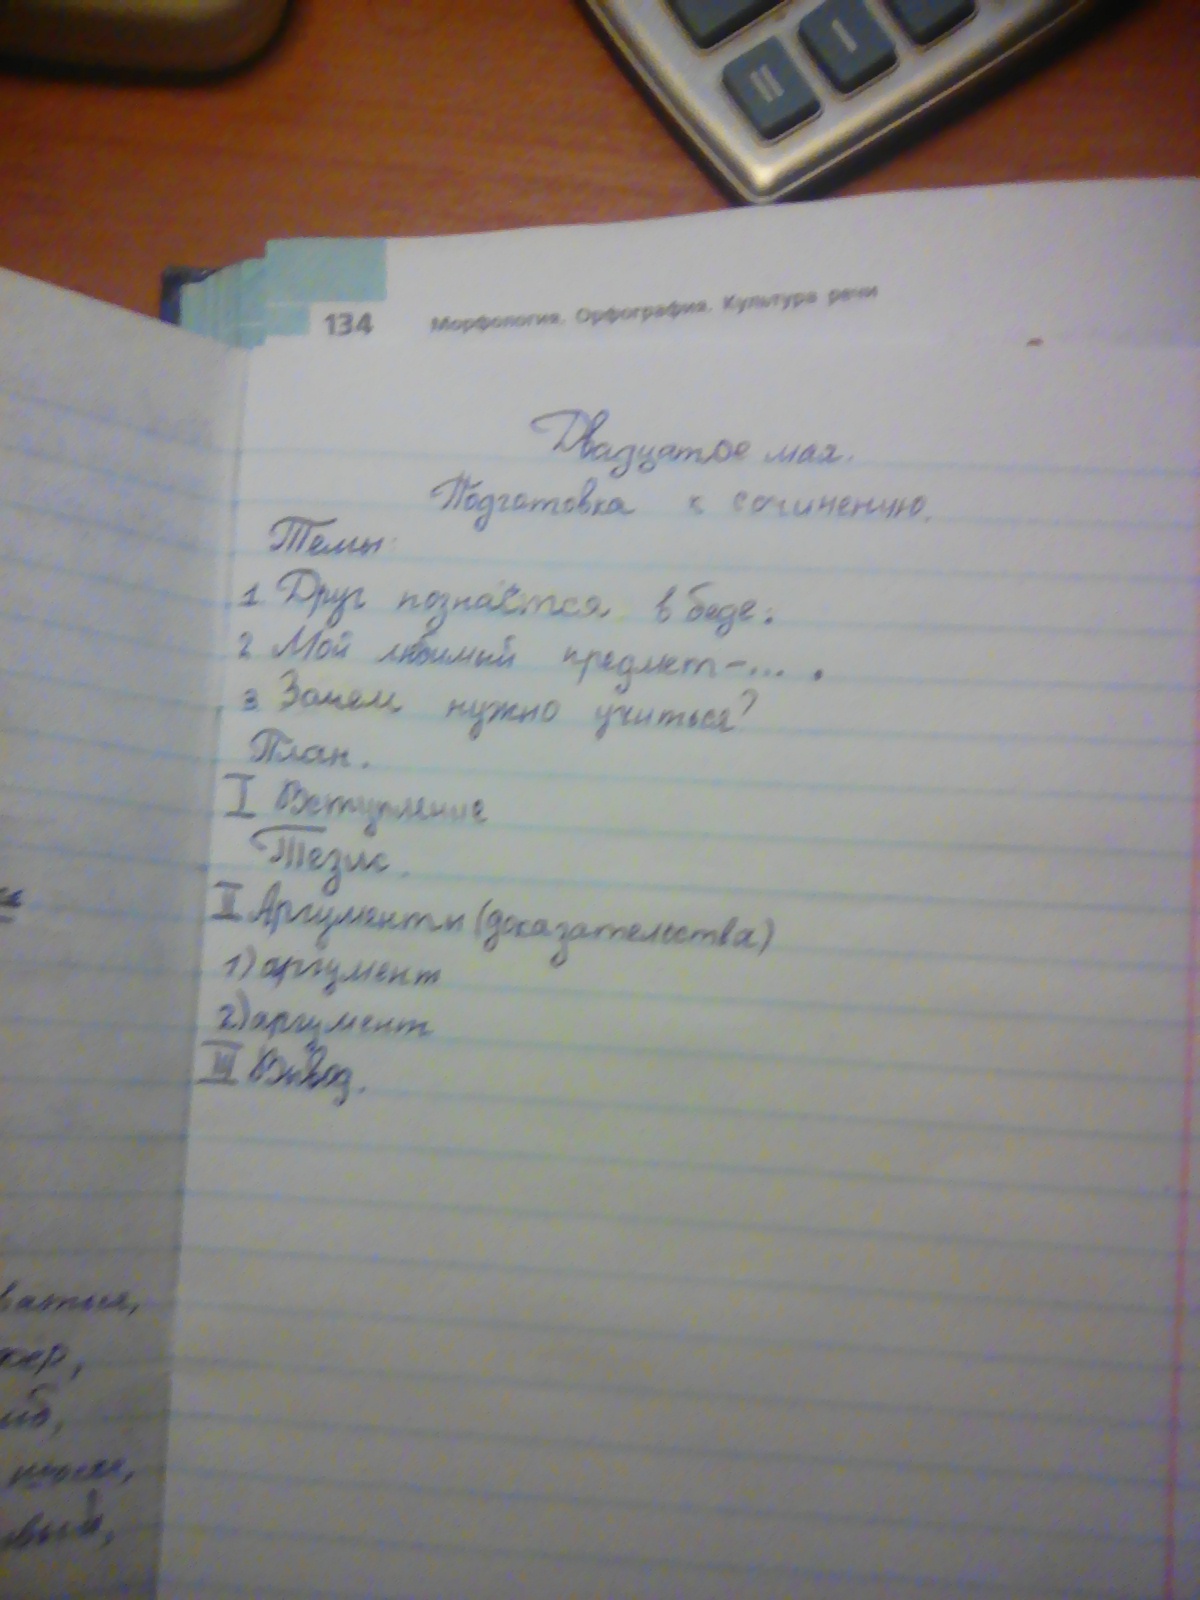 134 Морфология. Орфография. Культура речи
Двадцатое мая.
Подготовка к сочинению.
Темы:
1 Друг познаётся в беде.
2 Мой любимый предмет-... .
3 Зачем нужно учиться?
План.
I Вступление
Тезис.
II Аргументы (доказательства)
1) аргумент
2) аргумент
III Вывод.